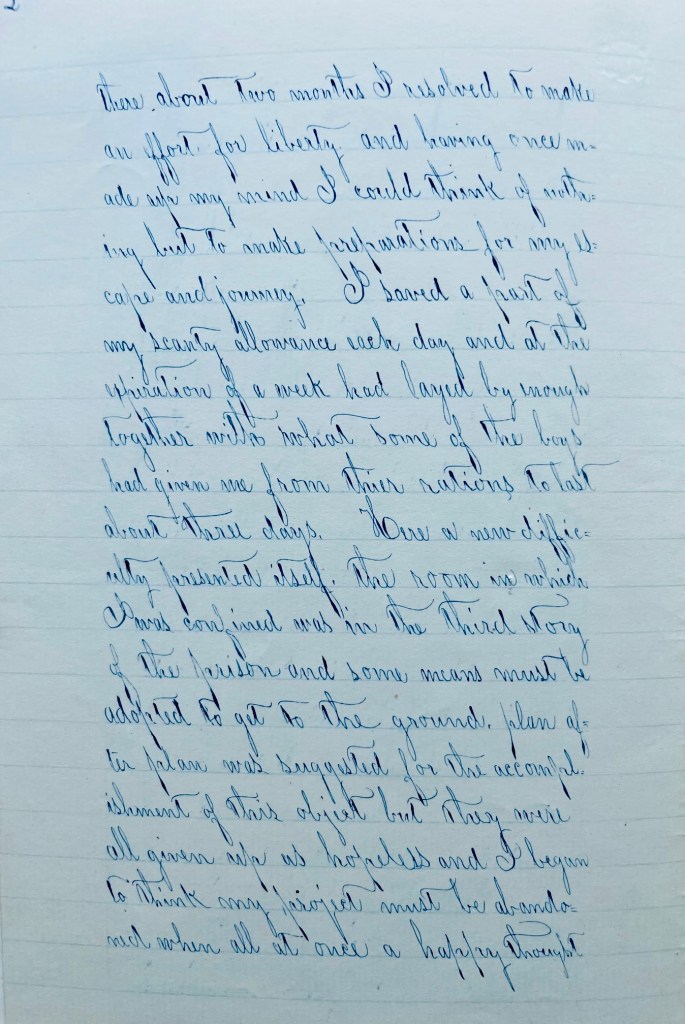 2
there about two months I resolved to make
an effort for liberty and having once m=
ade up my mind I could think of noth=
ing but to make preparations for my es=
cape and journey. I saved a part of
my scanty allowance each day and at the
expiration of a week had layed by enough
together with what some of the boys
had given me from thier rations to last
about three days. Here a new diffic=
ulty presented itself. the room in which
I was confined was in the third story
of the prison and some means must be
adopted to get to the ground. plan af=
ter plan was suggested for the accompl=
ishment of this object but they were
all given up as hopeless and I began
to think my project must be abando=
ned when all at once a happy thought